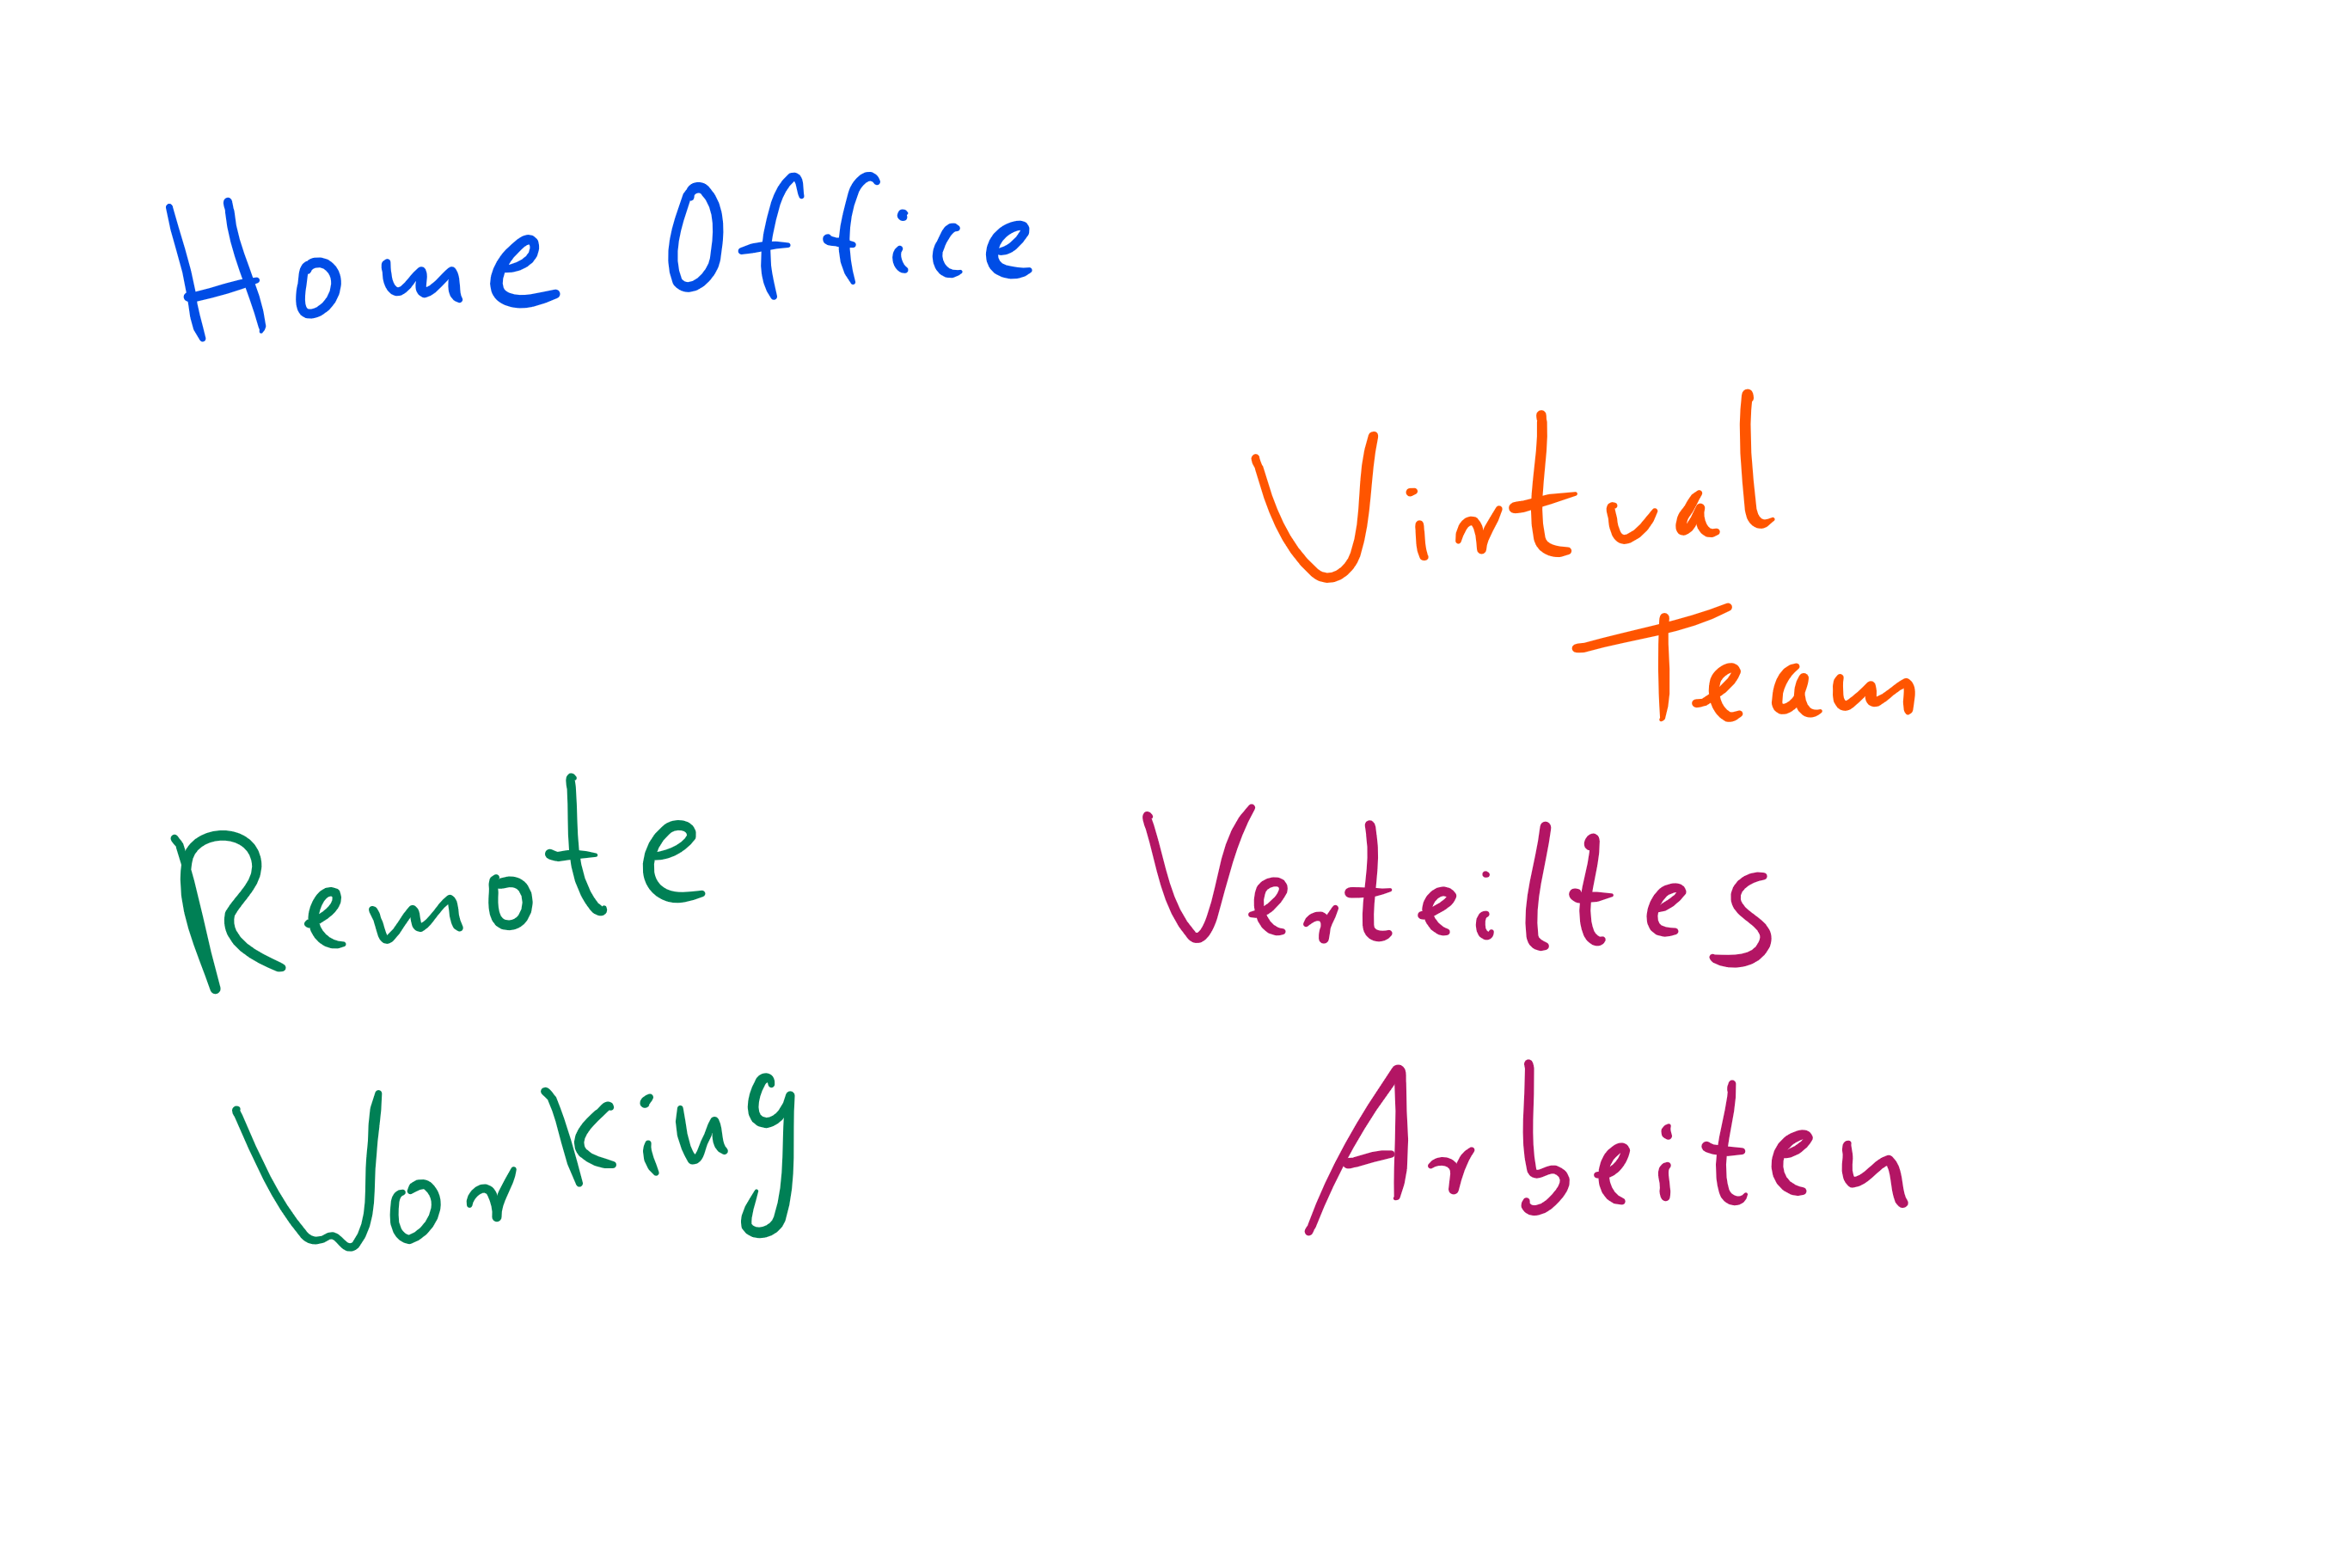 Home Office
Virtual
Team
Remote
Working
Verteiltes
Arbeiten